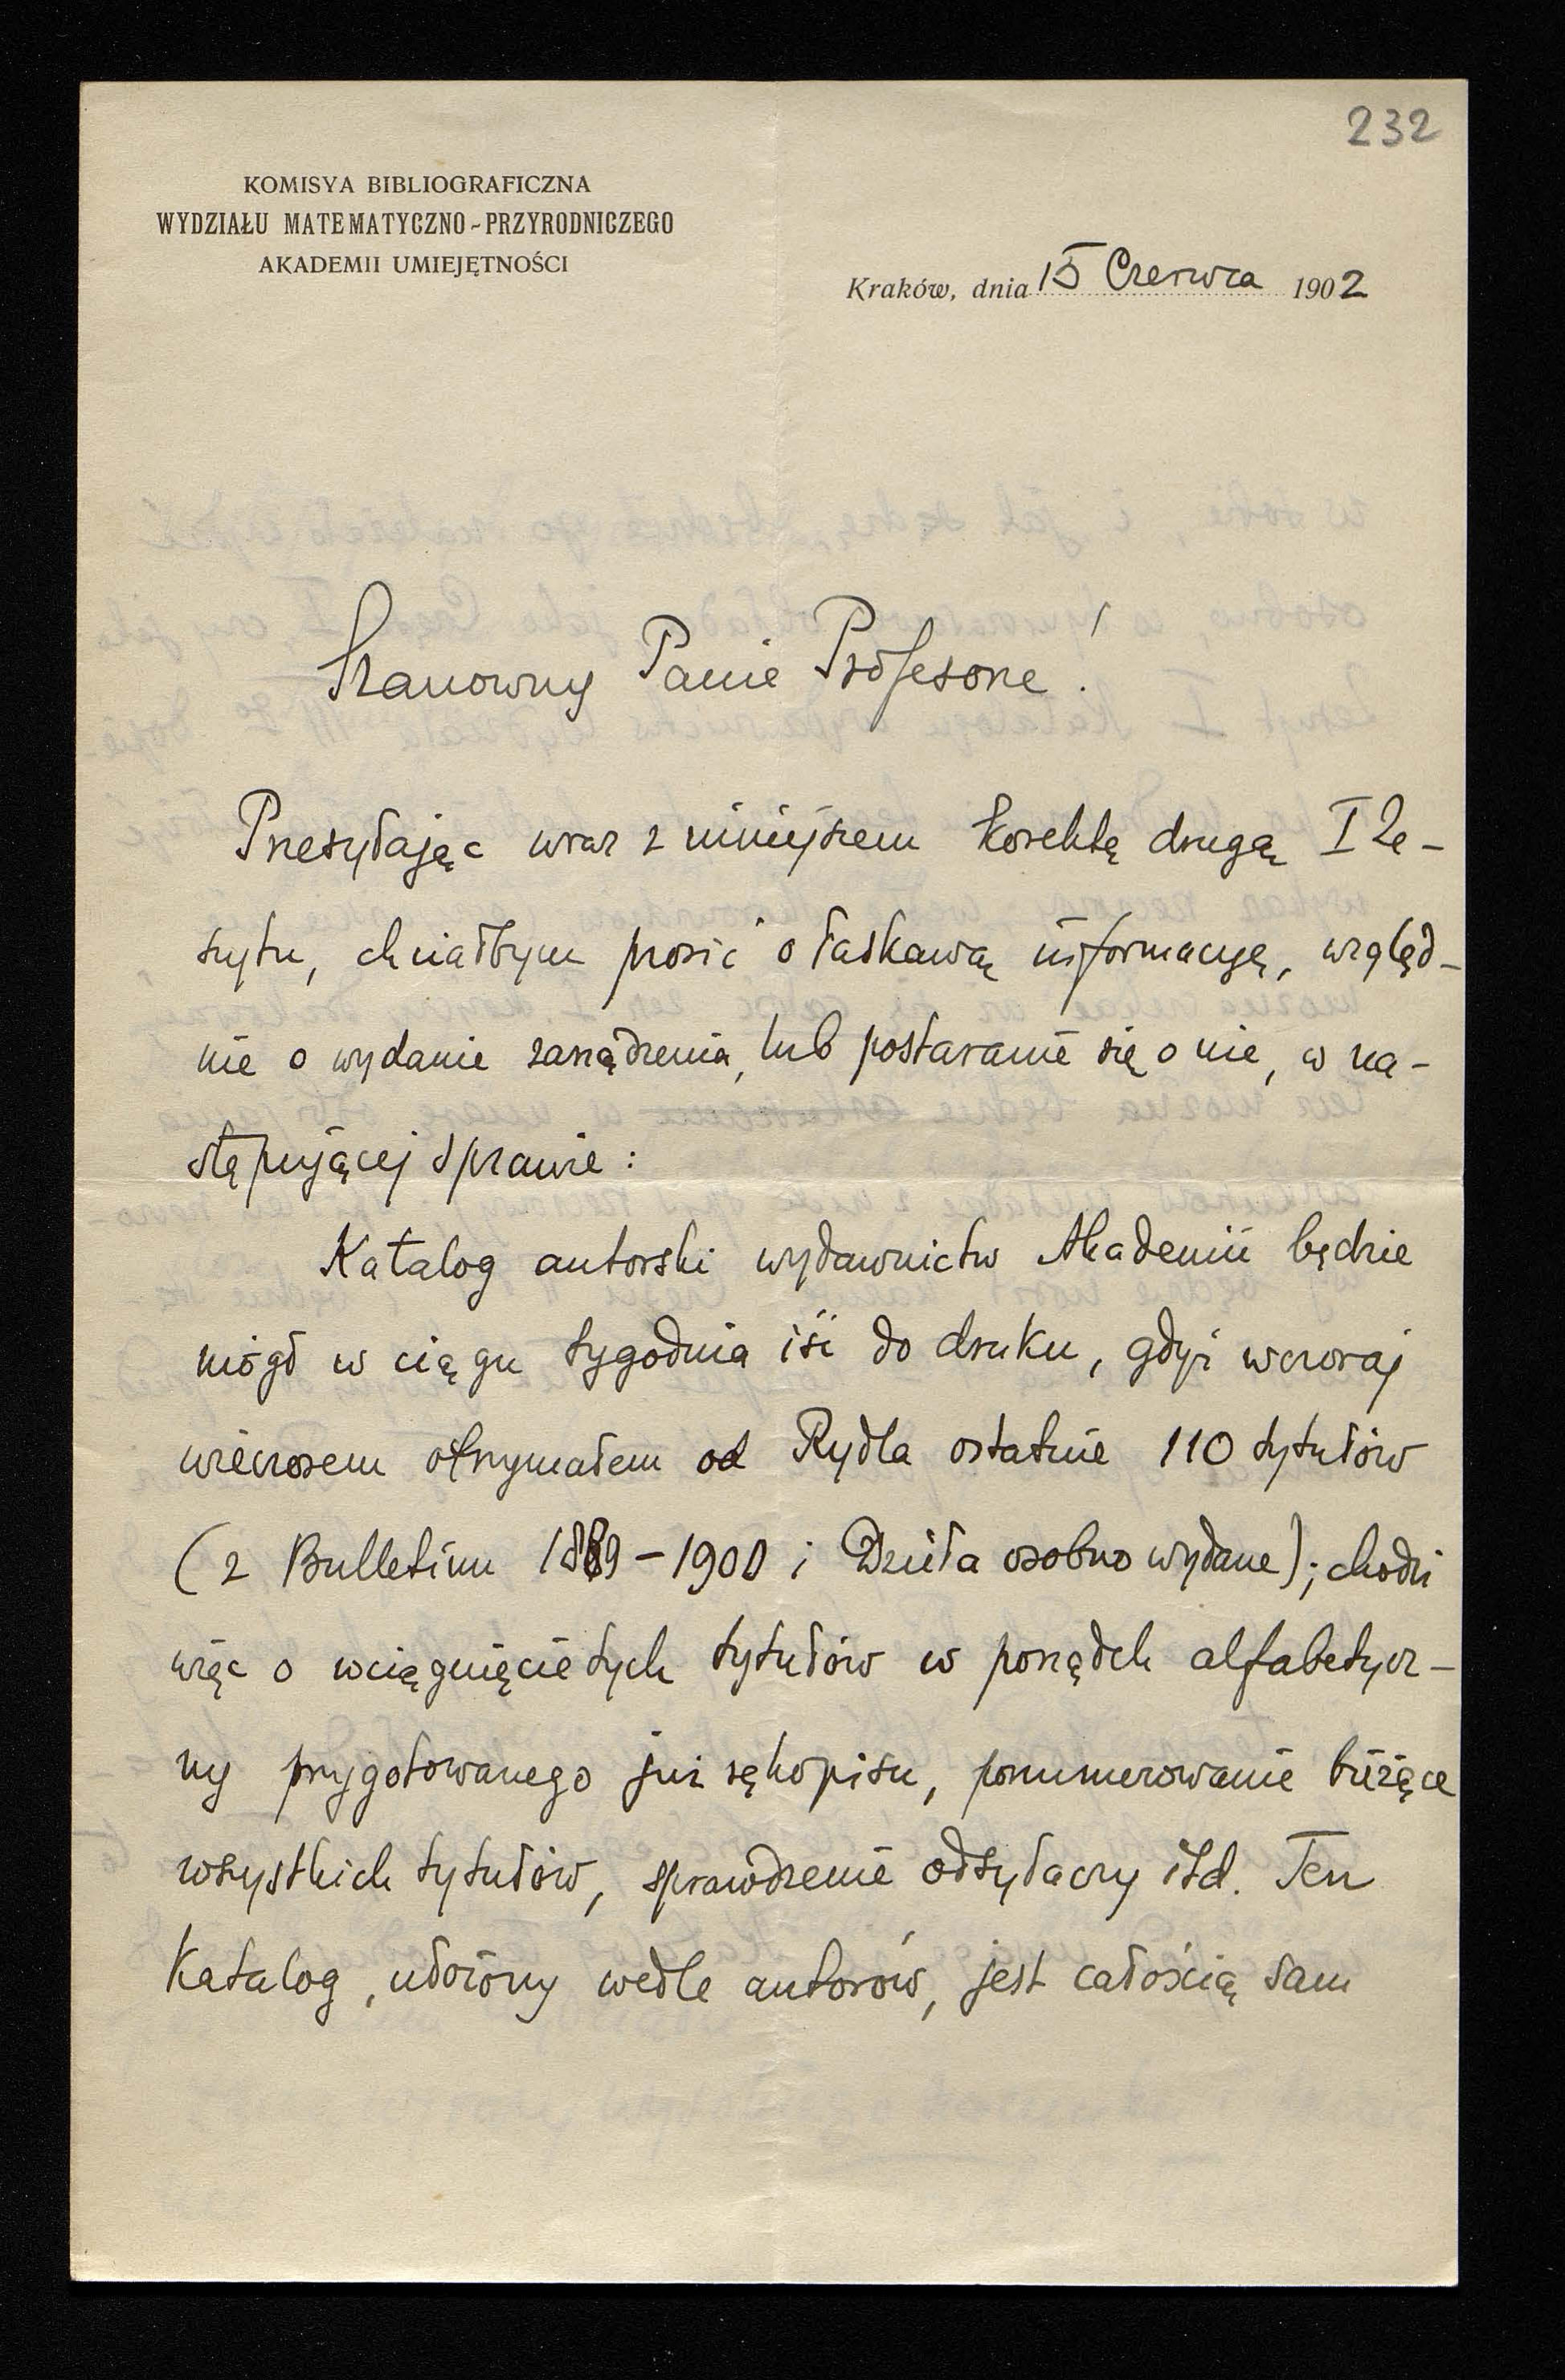 232
KOMISYA BIBLIOGRAFICZNA
WYDZIAŁU MATEMATYCZNO-PRZYRODNICZEGO
AKADEMII UMIEJĘTNOŚCI
Kraków, dnia 15 Czerwca 1902
Szanowny Panie Profesorze!
Przesyłając wraz z niniejszem korektę drugą I Ze-
szytu, chciałbym prosić o łaskawą informacyę, względ-
nie o wydanie zarządzenia, lub postaranie się o nie, w na-
stępującej sprawie:
Katalog autorski wydawnictw Akademii będzie
mógł w ciągu tygodnia iść do druku, gdyż wczoraj
wieczorem otrzymałem od Rydla ostatnie 110 tytułów
(z Bulletinu 1889-1900 i Dzieła osobno wydane); chodzi
więc o wciągnięcie tych tytułów w porządek alfabetycz-
ny przygotowanego już rękopisu, ponumerowanie bieżące
wszystkich tytułów, sprawdzenie odsyłaczy itd. Ten
Katalog, ułożony wedle autorów, jest całością sam